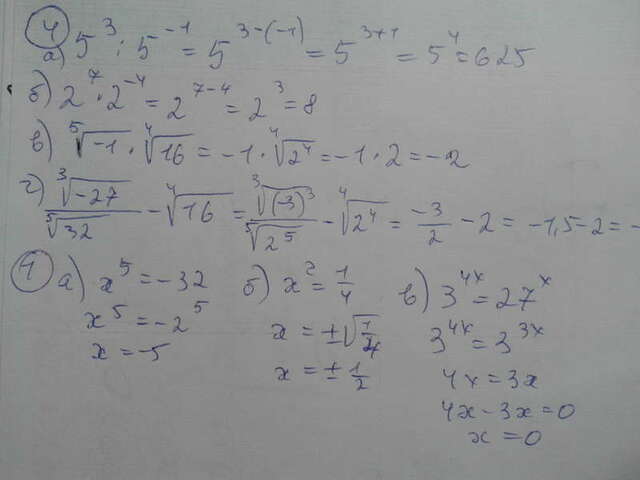 4
а) 5³ : 5⁻¹ = 5³⁻⁽⁻¹⁾ = 5³⁺¹ = 5⁴ = 625
б) 2⁷ · 2⁻⁴ = 2⁷⁻⁴ = 2³ = 8
в) ⁵√-1 · ⁴√16 = -1 · ⁴√2⁴ = -1 · 2 = -2
г) ³√-27 / ⁵√32 - ⁴√16 = ³√(-3)³ / ⁵√2⁵ - ⁴√2⁴ = -3/2 - 2 = -1,5-2 = -
а) x⁵ = -32
x⁵ = -2⁵
x = -5
б) x² = 1/4
x = ±√1/4
x = ± 1/2
в) 3⁴ˣ = 27ˣ
3⁴ˣ = 3³ˣ
4x = 3x
4x - 3x = 0
x = 0